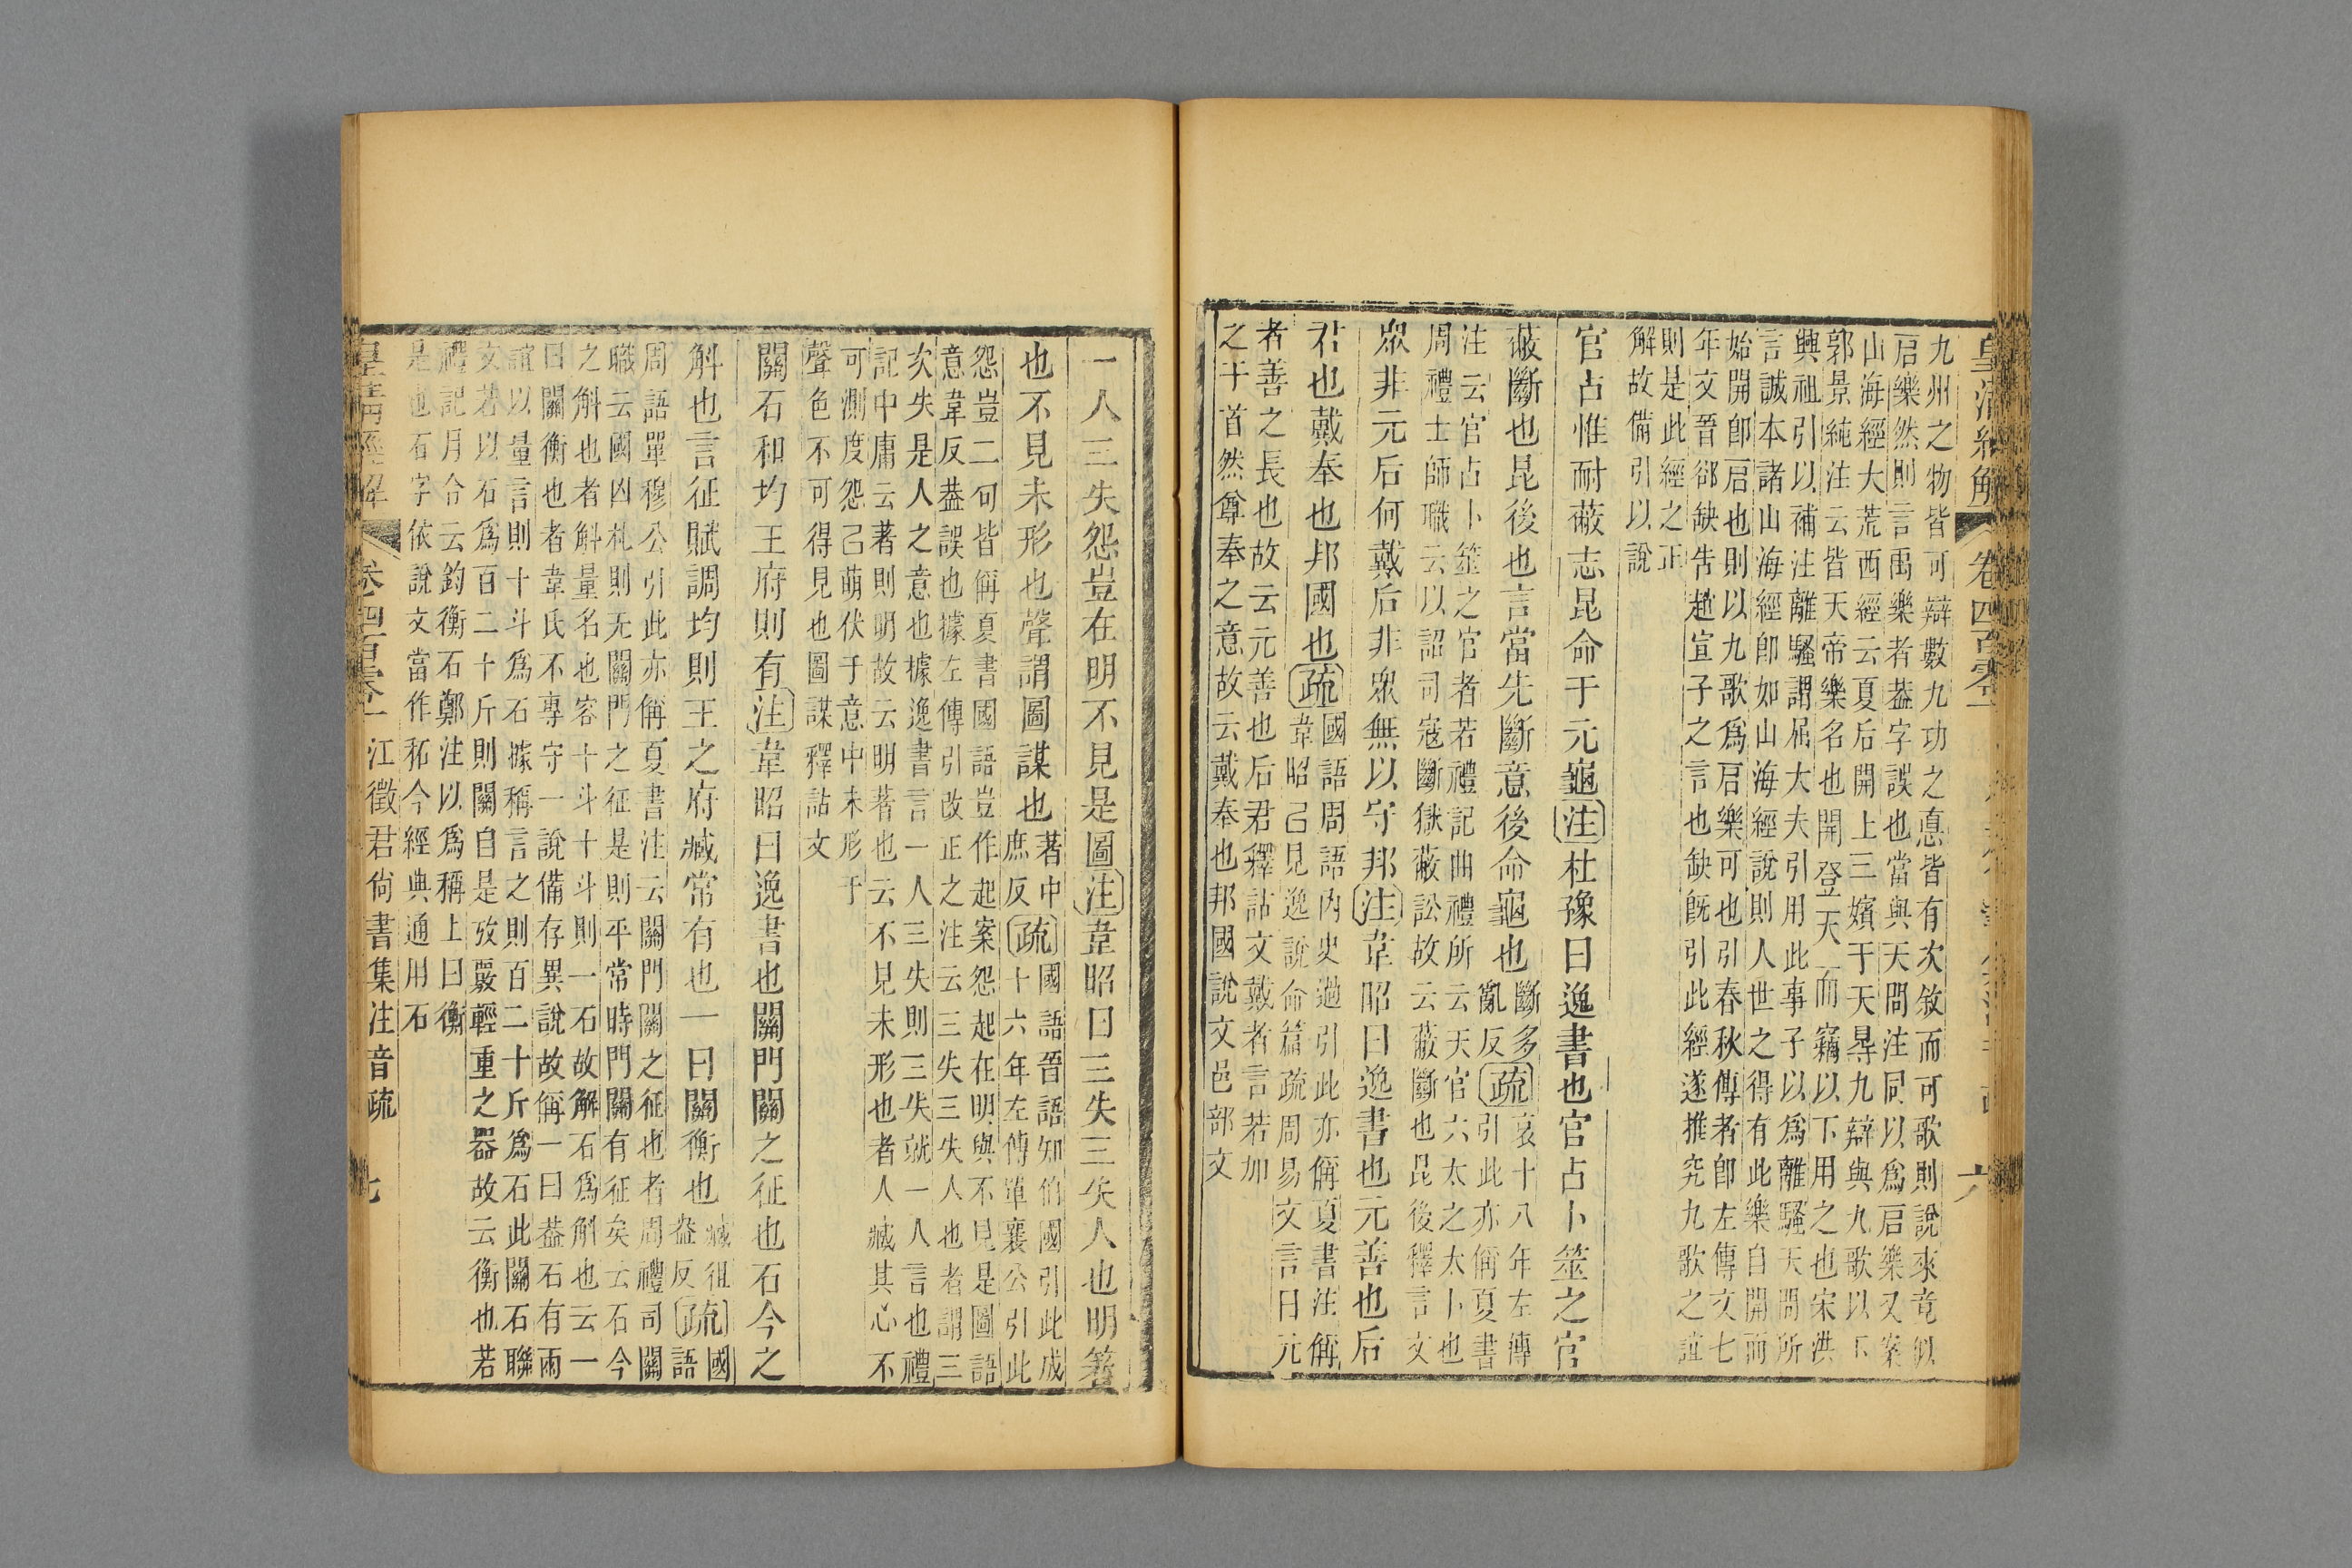 皇清經解 卷四百零一 六
九州之物皆可辯數九功之惪皆有次敘而可歌則說來竟似
启樂然則言禹樂者葢字誤也當與天問注同以爲启樂又案
山海經大荒西經云夏后開上三嬪于天㝵九辯與九歌以下
郭景純注云皆天帝樂名也開登天而竊以下用之也宋洪
興祖引以補注離騷謂屈大夫引用此事子以爲離騷天問所
言誠本諸山海經卽如山海經說則人世之得有此樂自開而
始開卽启也則以九歌爲启樂可也引春秋傳者卽左傳文七
年文晉郤缺告趙宣子之言也缺旣引此經遂推究九歌之誼
則是此經之正
解故備引以說
官占惟耐蔽志昆命于元龜注杜豫曰逸書也官占卜筮之官
蔽斷也昆後也言當先斷意後命龜也斷多
亂反疏哀十八年左傳
引此亦偁夏書
注云官占卜筮之官者若禮記曲禮所云天官六太之太卜也
周禮士師職云以詔司寇斷獄蔽訟故云蔽斷也昆後釋言文
眾非元后何戴后非眾無以守邦注韋昭曰逸書也元善也后
君也戴奉也邦國也疏國語周語內史過引此亦偁夏書注偁
韋昭己見逸說命篇疏周易文言曰元
者善之長也故云元善也后君釋詁文戴者言若加
之于首然尊奉之意故云戴奉也邦國說文邑部文
一人三失怨豈在明不見是圖注韋昭曰三失三失人也明箸
也不見未形也聲謂圖謀也著中
庶反疏國語晉語知伯國引此成
十六年左傳單襄公引此
怨豈二句皆偁夏書國語豈作起案怨起在明與不見是圖語
意韋反葢誤也據左傳引改正之注云三失三失人也者謂三
次失是人之意也據逸書言一人三失則三失就一人言也禮
記中庸云著則明故云明著也云不見未形也者人臧其心不
可測度怨己萌伏于意中未形于
聲色不可得見也圖謀釋詁文
關石和均王府則有注韋昭曰逸書也關門關之征也石今之
斛也言征賦調均則王之府臧常有也一曰關衡也臧徂
葢反疏國
語
周語單穆公引此亦偁夏書注云關門關之征也者周禮司關
職云國凶札則无關門之征是則平常時門關有征矣云石今
之斛也者斛量名也容十斗十斗則一石故解石爲斛也云一
曰關衡也者韋氏不專守一說備存異說故偁一曰葢石有兩
誼以量言則十斗爲石據稱言之則百二十斤爲石此關石聯
文若以石爲百二十斤則關自是攷覈輕重之器故云衡也若
禮記月令云鈞衡石鄭注以爲稱上曰衡
是也石字依說文當作䄷今經典通用石
皇清經解 卷四百零一 江徵君尙書集注音疏 七